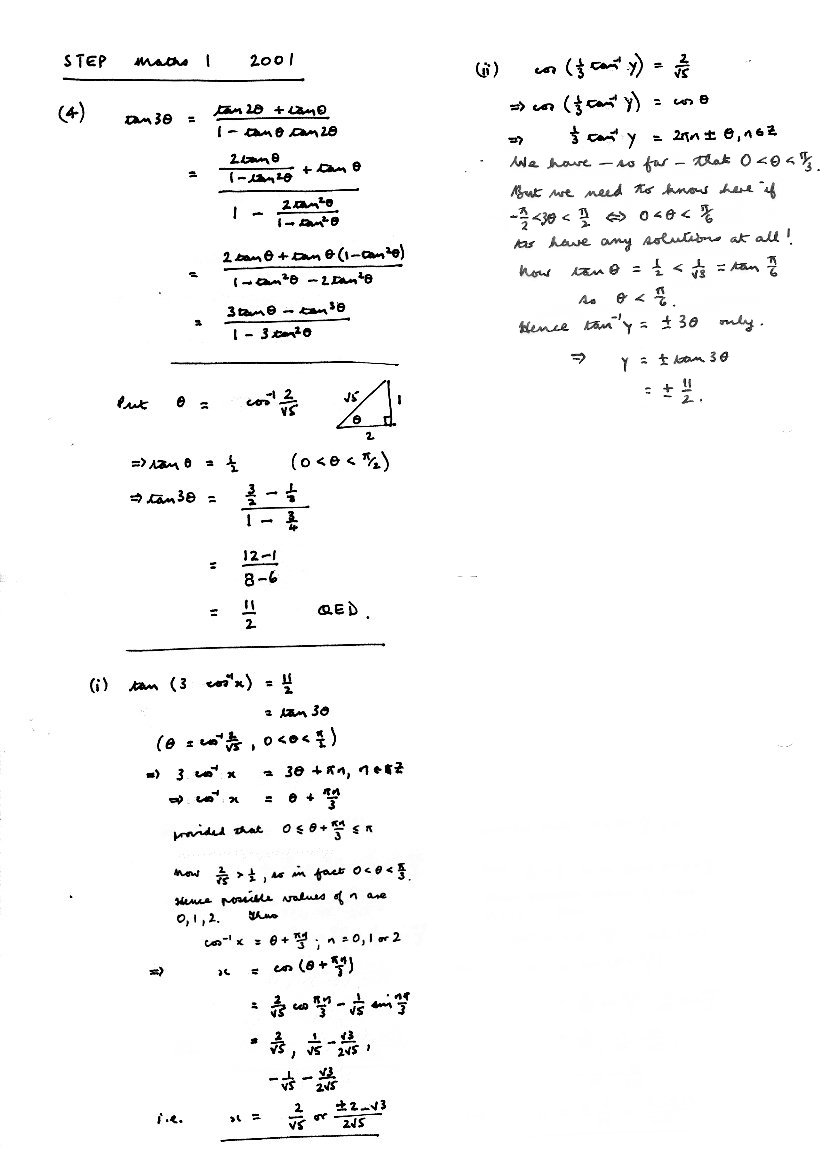 STEP Maths 1 2001
(4) tan3θ = (tan2θ + tanθ)/(1 - tanθ tan2θ)
= (2tanθ/(1-tan²θ) + tanθ)/(1 - 2tan²θ/(1-tan²θ))
= (2tanθ + tanθ(1-tan²θ))/(1-tan²θ - 2tan²θ)
= (3tanθ - tan³θ)/(1 - 3tan²θ)
Put θ = cos⁻¹ 2/√5
√5 1
θ
2
⇒ tanθ = 1/2 (0 < θ < π/2)
⇒ tan3θ = (3/2 - 1/8)/(1 - 3/4)
= (12-1)/(8-6)
= 11/2 QED.
(i) tan (3 cos⁻¹x) = 11/2
= tan 3θ
(θ = cos⁻¹ 2/√5, 0 < θ < π/2)
⇒ 3 cos⁻¹ x = 3θ + πn, n ∈ Z
⇒ cos⁻¹ x = θ + πn/3
provided that 0 ≤ θ + πn/3 ≤ π
Now 2/√5 > 1/2, so in fact 0 < θ < π/3.
Hence possible values of n are
0, 1, 2. Thus
cos⁻¹ x = θ + πn/3; n = 0, 1 or 2
⇒ x = cos (θ + πn/3)
= 2/√5 cos πn/3 - 1/√5 sin nπ/3
= 2/√5, 1/√5 - √3/2√5,
-1/√5 - √3/2√5
i.e. x = 2/√5 or (±2-√3)/2√5
(ii) cos (1/3 tan⁻¹ y) = 2/√5
⇒ cos (1/3 tan⁻¹ y) = cos θ
⇒ 1/3 tan⁻¹ y = 2πn ± θ, n∈Z
We have - so far - that 0 < θ < π/3.
But we need to know here if
-π/2 < 3θ < π/2 ⇔ 0 < θ < π/6
to have any solutions at all!
Now tan θ = 1/2 < 1/√3 = tan π/6
so θ < π/6.
Hence tan⁻¹y = ± 3θ only.
⇒ y = ± tan 3θ
= ± 11/2.